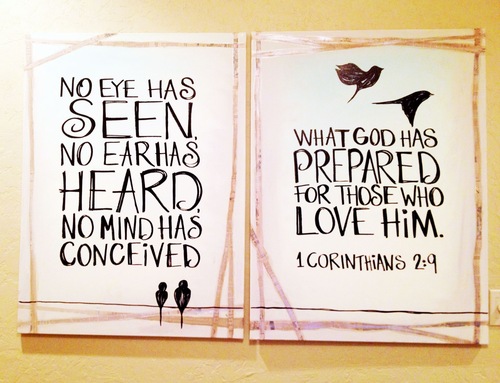 NO EYE HAS
SEEN,
NO EAR HAS
HEARD,
NO MIND HAS
CONCEiVED
WHAT GOD HAS
PREPARED
FOR THOSE WHO
LOVE HiM.
1 CORiNTHiANS 2:9